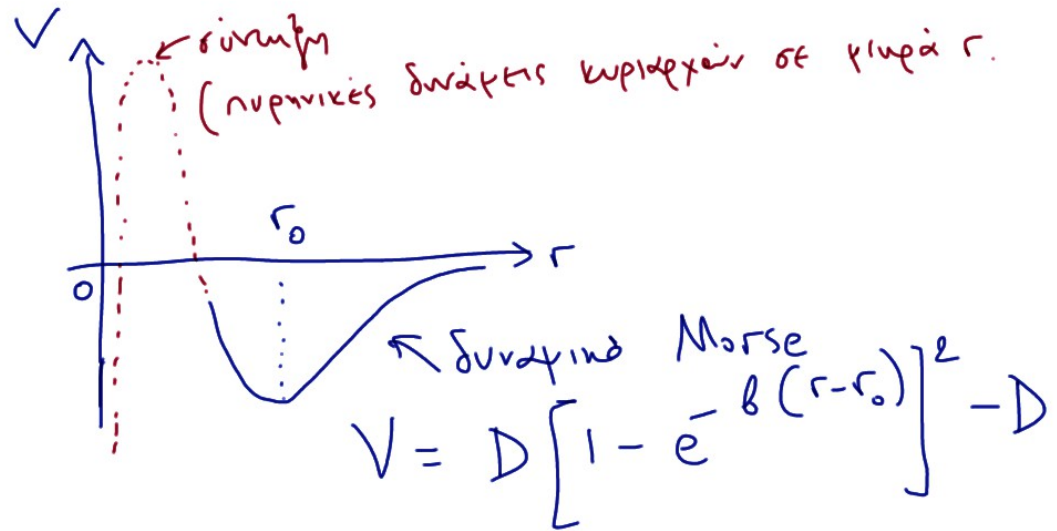 V
σύντηξη
(πυρηνικές δυνάμεις κυριαρχούν σε μικρά r.
r₀
r
0
δυναμικό Morse
V = D [1 - e^{-β(r-r₀)}]² - D